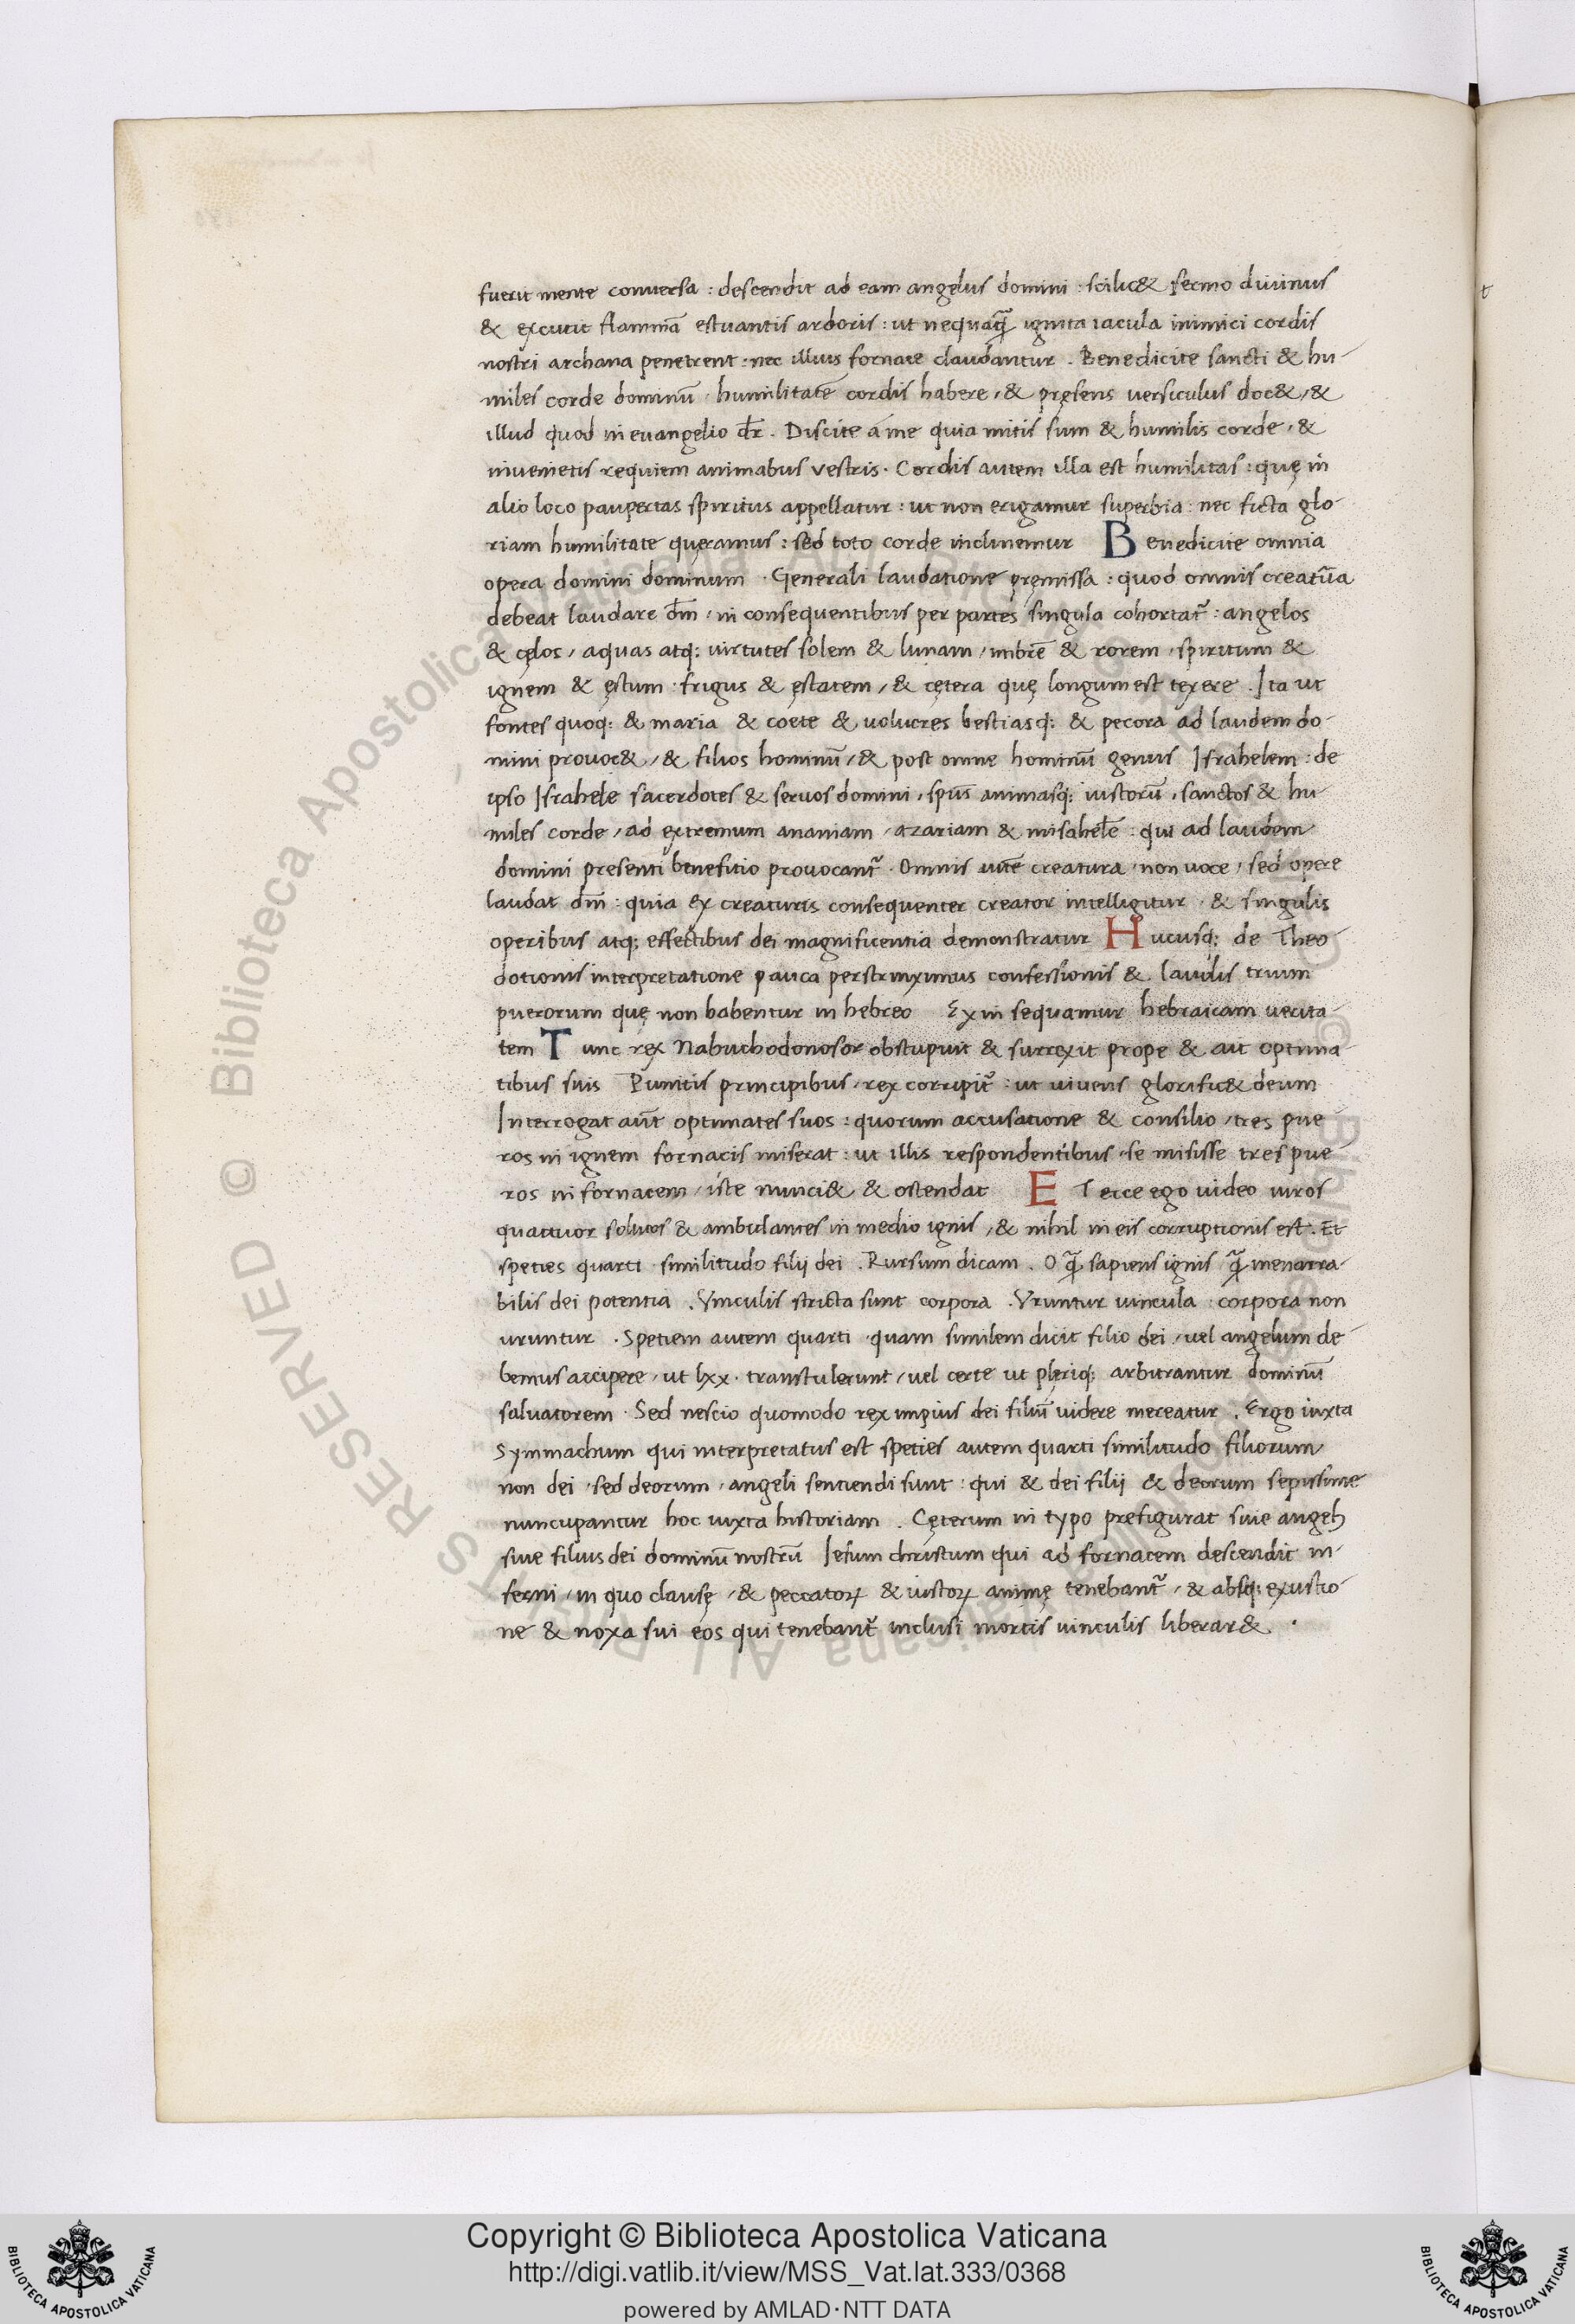 fuerit mente conuersa : descendit ad eam angelus domini : scilic& sermo diuinus
& excutit flammā estuantis ardoris : ut nequaꝙ̄ ignita iacula inimici cordis
nostri archana penetrent : nec illius fornace claudantur . Benedicite sancti & hu-
miles corde dominū . humilitatē cordis habere , & pręsens uersiculus doc& , &
illud quod in euangelio dr̄ . Discite a me quia mitis sum & humilis corde , &
inuenietis requiem animabus vestris . Cordis autem illa est humilitas : quę in
alio loco paupertas spiritus appellatur : ut non erigamur superbia : nec ficta glo-
riam humilitate quęramus : sed toto corde inclinemur Benedicite omnia
opera domini dominum . Generali laudatione pręmissa : quod omnis creatūa
debeat laudare dm̄ , in consequentibus per partes singula cohortat̄ : angelos
& cęlos , aquas atq; uirtutes solem & lunam , imbrē & rorem , spiritum &
ignem & ęstum : frigus & ęstatem , & cętera quę longum est texere . Ita ut
fontes quoq; & maria & coete & uolucres bestiasq; & pecora ad laudem do-
mini prouoc& , & filios hominū , & post omne hominū genus Israhelem : de
ipso Israhele sacerdotes & seruos domini , spūs animasq; iustorū , sanctos & hu-
miles corde , ad extremum ananiam , azariam & misahelē : qui ad laudem
domini presenti benefitio prouocant̄ . Omnis autē creatura , non uoce , sed opere
laudat dm̄ : quia ex creaturis consequenter creator intelligitur . & singulis
operibus atq; effectibus dei magnificentia demonstratur Hucusq; de Theo-
dotionis interpretatione pauca perstrinximus confessionis & laudis trium
puerorum quę non habentur in hebreo Exin sequamur hebraicam uerita-
tem Tunc rex Nabuchodonosor obstupuit & surrexit prope & ait optima-
tibus suis Punitis principibus , rex corripit̄ : ut uiuens glorific& deum
Interrogat aūt optimates suos : quorum accusatione & consilio , tres pue
ros in ignem fornacis miserat : ut illis respondentibus , se misisse tres pue
ros in fornacem , iste nunci& , & ostendat ET ecce ego uideo uiros
quattuor solutos & ambulantes in medio ignis , & nihil in eis corruptionis est . Et
speties quarti similitudo filij dei . Rursum dicam . O ꝙ̄ sapiens ignis ꝙ̄ inenarra-
bilis dei potentia . Vinculis stricta sunt corpora . Vruntur uincula : corpora non
uruntur . Spetiem autem quarti quam similem dicit filio dei , uel angelum de-
bemus accipere , ut lxx . transtulerunt , uel certe ut pleriq; arbitrantur dominū
saluatorem . Sed nescio quomodo rex impius dei filiū uidere mereatur . Ergo iuxta
Symmachum qui interpretatus est speties autem quarti similitudo filiorum
non dei , sed deorum , angeli sentiendi sunt : qui & dei filij & deorum sepissime
nuncupantur hoc iuxta historiam . Cęterum in typo prefigurat siue angelꝰ
siue filius dei dominū nostrū Iesum christum qui ad fornacem descendit in-
ferni , in quo clausę , & peccatoꝝ & iustoꝝ animę tenebant̄ , & absq; exustio-
ne & noxa sui eos qui tenebant̄ inclusi mortis uinculis liberar& .
t
Copyright © Biblioteca Apostolica Vaticana
http://digi.vatlib.it/view/MSS_Vat.lat.333/0368
powered by AMLAD·NTT DATA
BIBLIOTECA APOSTOLICA VATICANA
BIBLIOTECA APOSTOLICA VATICANA